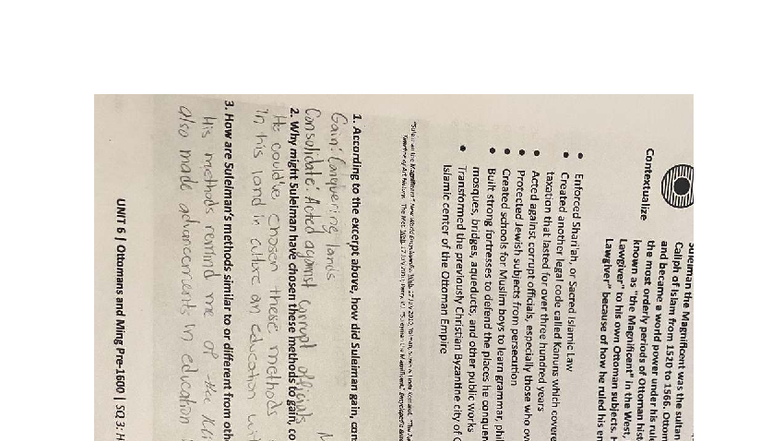 Contextualize
Suleiman the Magnificent was the sultan
Caliph of Islam from 1520 to 1566. Ottom
and became a world power under his ru
the most orderly periods of Ottoman hist
known as "the Magnificent" in the West
Lawgiver" to his own Ottoman subjects. H
Lawgiver" because of how he ruled his e
• Enforced Shari'ah, or Sacred Islamic Law
• Created another legal code called Kanuns which covere
taxation that lasted for over three hundred years
• Acted against corrupt officials, especially those who ov
• Protected Jewish subjects from persecution
• Created schools for Muslim boys to learn grammar, phil
• Built strong fortresses to defend the places he conquer
mosques, bridges, aqueducts, and other public works
• Transformed the previously Christian Byzantine city of C
Islamic center of the Ottoman Empire
1. According to the excerpt above, how did Suleiman gain, con
Gain: Conquering lands
Consolidate: Acted against corrupt officials
2. Why might Suleiman have chosen these methods to gain, co
He could've chosen these methods
in his land in culture an education wit
3. How are Suleiman's methods similar to or different from othe
His methods remind me of the
also made advancements in education
UNIT 6 | Ottomans and Ming Pre-1600 | SQ 3: H